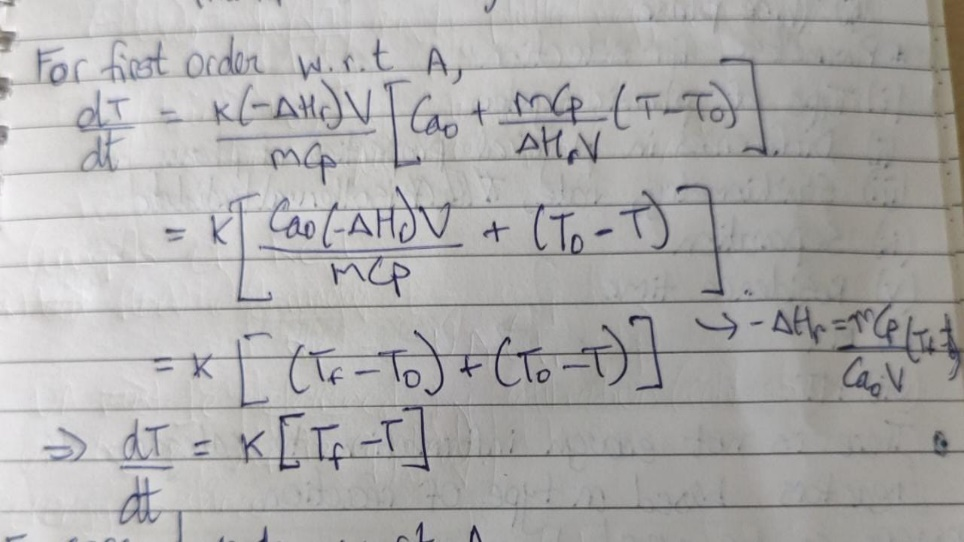 For first order w.r.t A,
dT/dt = K(-ΔHr)V/mCp [Ca₀ + mCp/ΔHrV (T-T₀)].
= K[Ca₀(-ΔHr)V/mCp + (T₀-T)].
= K[(Tf-T₀)+(T₀-T)] → -ΔHr = mCp/Ca₀V (Tf-
⇒ dT/dt = K[Tf-T]